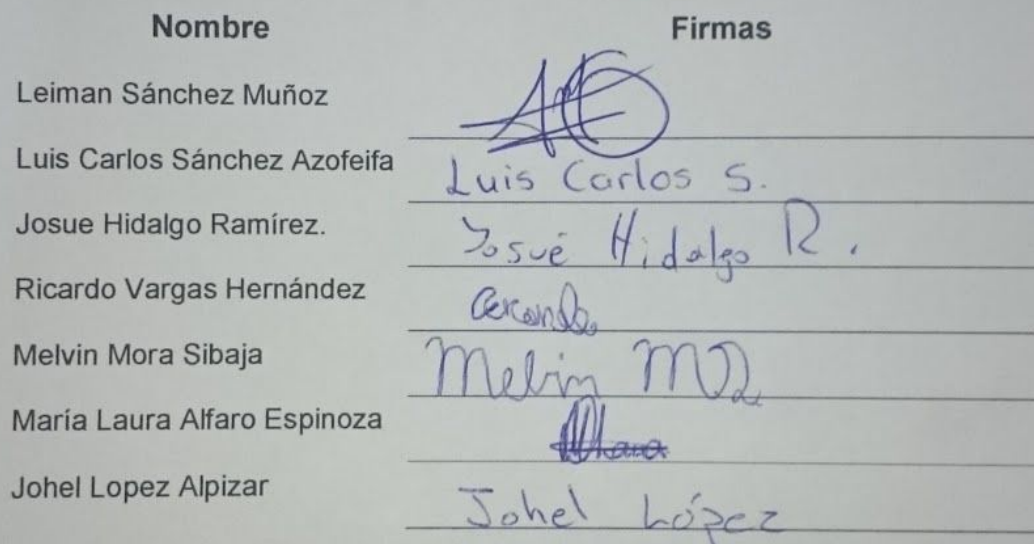 Nombre Firmas
Leiman Sánchez Muñoz
Luis Carlos Sánchez Azofeifa Luis Carlos S.
Josue Hidalgo Ramírez. Josué Hidalgo R.
Ricardo Vargas Hernández
Melvin Mora Sibaja Melvin
María Laura Alfaro Espinoza
Johel Lopez Alpizar Johel López